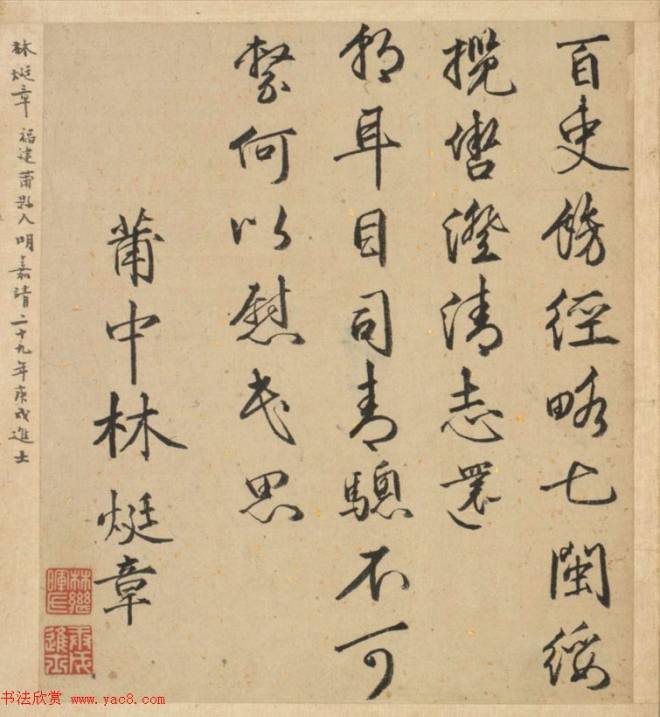 百吏飭經略七閩綏
攬轡澄清志還
朝耳目司青驄不可
縶何以慰民思
莆中林烶章
庚戌
進士
林烶章 福建莆县人 明嘉靖二十九年庚戌進士
书法欣赏 www.yac8.com